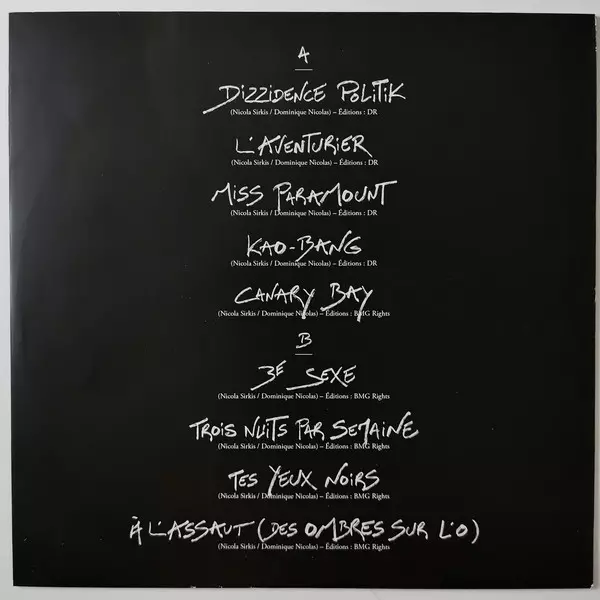 A
DIZZIDENCE POLITIK
(Nicola Sirkis / Dominique Nicolas) – Éditions : DR
L'AVENTURIER
(Nicola Sirkis / Dominique Nicolas) – Éditions : DR
MISS PARAMOUNT
(Nicola Sirkis / Dominique Nicolas) – Éditions : DR
KAO-BANG
(Nicola Sirkis / Dominique Nicolas) – Éditions : DR
CANARY BAY
(Nicola Sirkis / Dominique Nicolas) – Éditions : BMG Rights
B
3E SEXE
(Nicola Sirkis / Dominique Nicolas) – Éditions : BMG Rights
TROIS NUITS PAR SEMAINE
(Nicola Sirkis / Dominique Nicolas) – Éditions : BMG Rights
TES YEUX NOIRS
(Nicola Sirkis / Dominique Nicolas) – Éditions : BMG Rights
À L'ASSAUT (DES OMBRES SUR L'O)
(Nicola Sirkis / Dominique Nicolas) – Éditions : BMG Rights